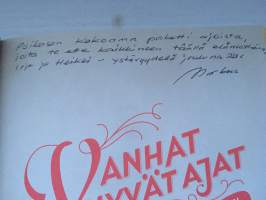 Poikasen kokoama paketti ajoista,
joita te ette kaikkineen täällä
Irja ja Heikki – ystävyydellä jouluna
Markus
VANHAT
HYVÄT AJAT